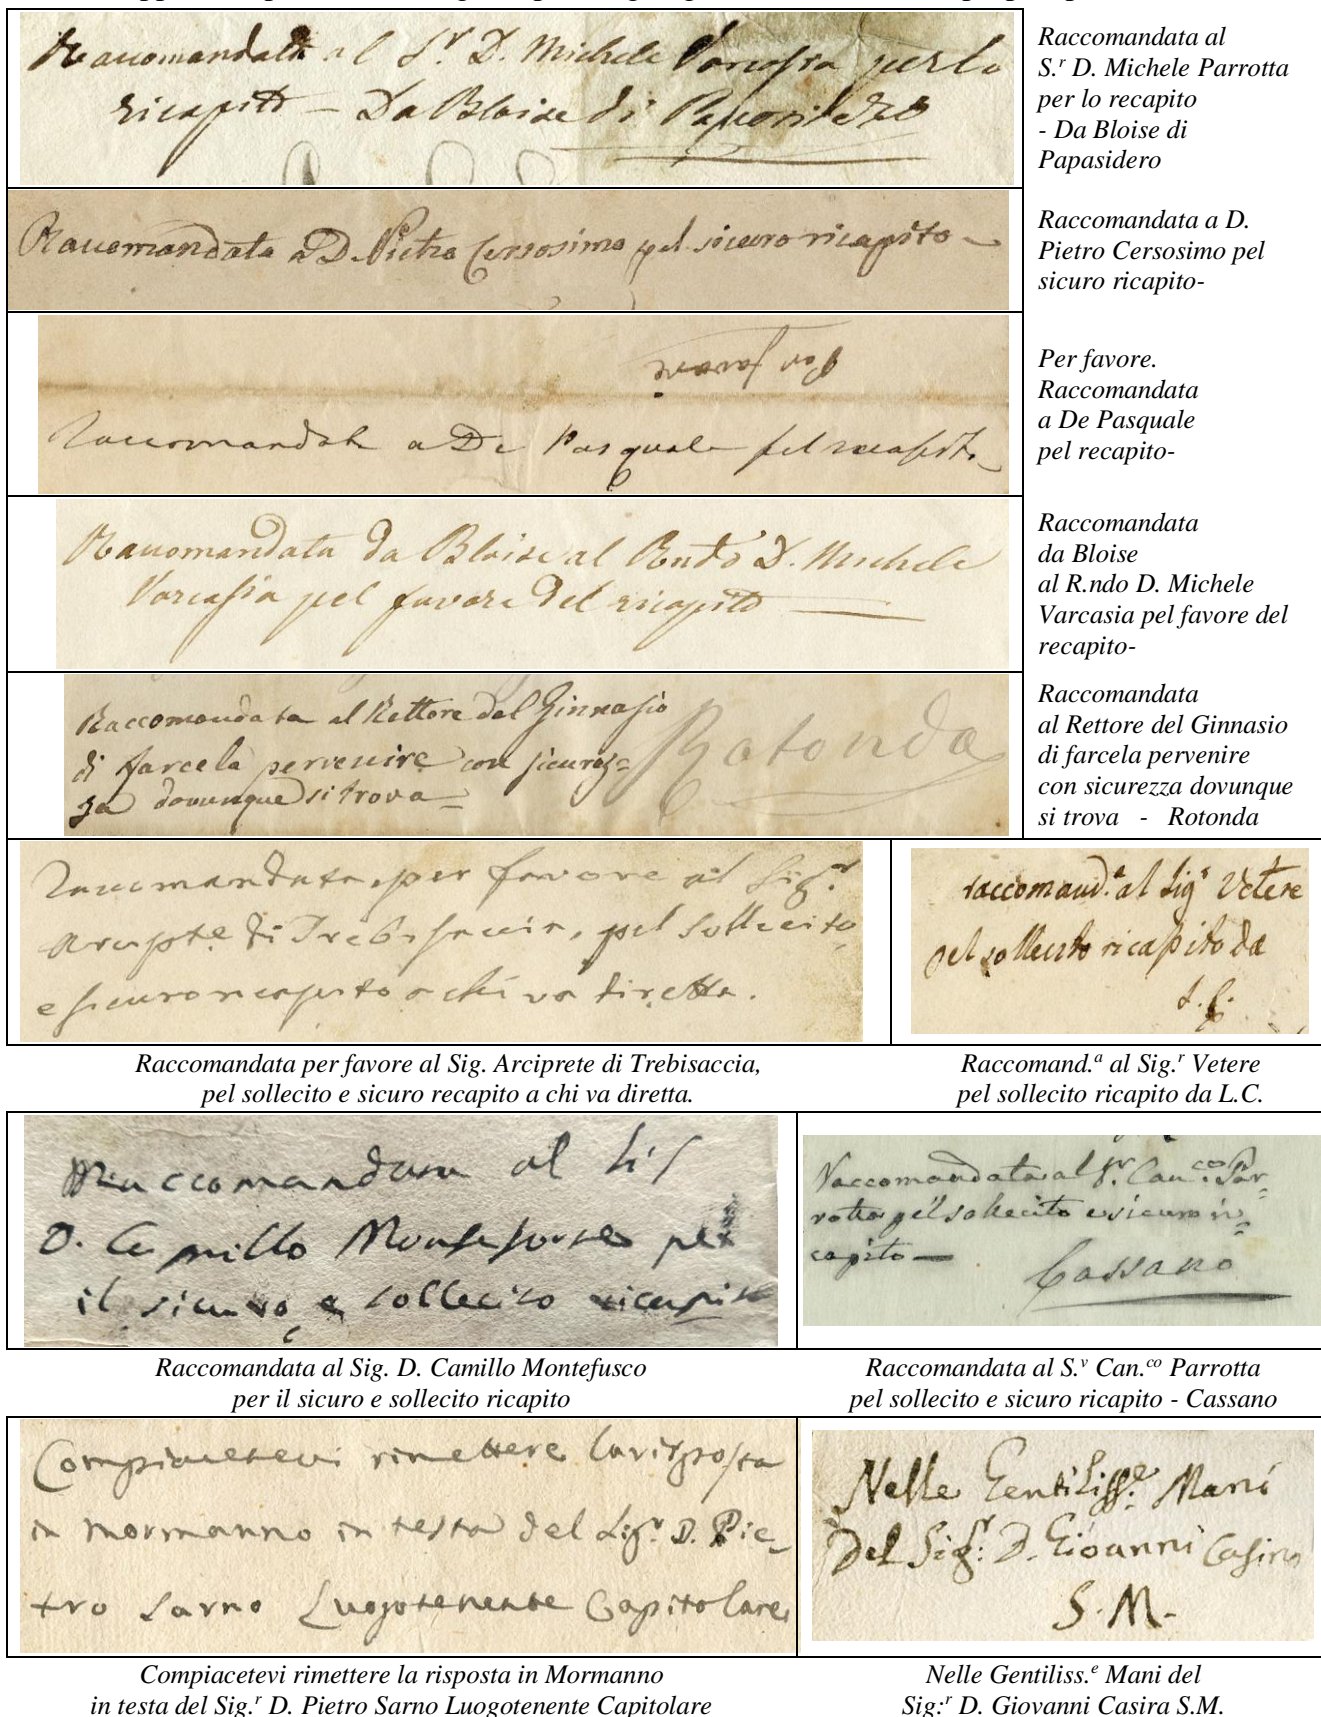 Raccomandata al S.r D. Michele Varcasia per lo
ricapito – Da Bloise di Papasidero
Raccomandata al
S.r D. Michele Parrotta
per lo recapito
- Da Bloise di
Papasidero
Raccomandata a D. Pietro Cersosimo pel sicuro ricapito –
Raccomandata a D.
Pietro Cersosimo pel
sicuro ricapito-
Per favore
Raccomandata a De Pasquale pel recapito
Per favore.
Raccomandata
a De Pasquale
pel recapito-
Raccomandata da Bloise al R.ndo D. Michele
Varcasia pel favore del ricapito —
Raccomandata
da Bloise
al R.ndo D. Michele
Varcasia pel favore del
recapito-
Raccomandata al Rettore del Ginnasio
di farcela pervenire con sicurez=
za dovunque si trova=
Rotonda
Raccomandata
al Rettore del Ginnasio
di farcela pervenire
con sicurezza dovunque
si trova - Rotonda
Raccomandata, per favore al Sig.r
Arcipte di Trebisaccia, pel sollecito
e sicuro ricapito a chi va diretta.
raccomand.a al Sig.r Vetere
pel sollecito ricapito da
Raccomandata per favore al Sig. Arciprete di Trebisaccia,
pel sollecito e sicuro recapito a chi va diretta.
Raccomand.a al Sig.r Vetere
pel sollecito ricapito da L.C.
Raccomandata al Sig
D. Camillo Montefusco per
il sicuro e sollecito ricapito
Raccomandata al S.r Can.co Par=
rotta pel sollecito e sicuro ri=
capito —
Cassano
Raccomandata al Sig. D. Camillo Montefusco
per il sicuro e sollecito ricapito
Raccomandata al S.v Can.co Parrotta
pel sollecito e sicuro ricapito - Cassano
Compiacetevi rimettere la risposta
in Mormanno in testa del Sig.r D. Pie_
tro Sarno Luogotenente Capitolare
Nelle Gentiliss.e Mani
Del Sig:r D. Gioanni Casira
S.M.
Compiacetevi rimettere la risposta in Mormanno
in testa del Sig.r D. Pietro Sarno Luogotenente Capitolare
Nelle Gentiliss.e Mani del
Sig:r D. Giovanni Casira S.M.